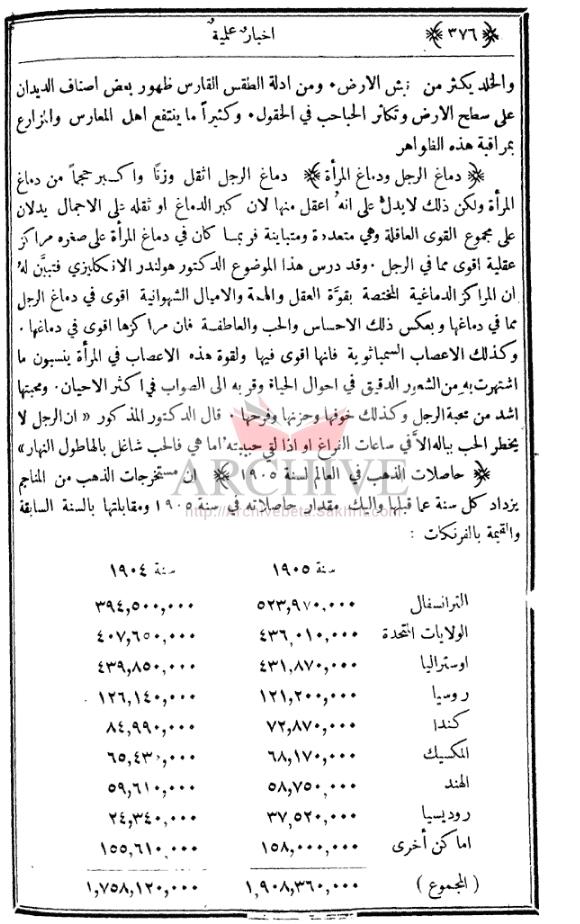 ﴿ ٣٧٦ ﴾ اخبار علمية
والخلد يكثر من نبش الارض ٠ ومن ادلة الطقس القارس ظهور بعض اصناف الديدان
على سطح الارض وتكاثر الحباحب في الحقول ٠ وكثيراً ما ينتفع اهل المغارس والمزارع
بمراقبة هذه الظواهر
﴿ دماغ الرجل ودماغ المرأة ﴾ دماغ الرجل اثقل وزنًا واكبر حجماً من دماغ
المرأة ولكن ذلك لا يدل على انهُ اعقل منها لان كبر الدماغ او ثقله على الاجمال يدلان
على مجموع القوى العاقلة وهي متعددة ومتباينة فربما كان في دماغ المرأة على صغره مراكز
عقلية اقوى مما في الرجل ٠ وقد درس هذا الموضوع الدكتور هولندر الانكليزي فتبيَّن لهُ
ان المراكز الدماغية المختصة بقوَّة العقل والهمة والاميال الشهوانية اقوى في دماغ الرجل
مما في دماغها وبعكس ذلك الاحساس والحب والعاطفة فان مراكزها اقوى في دماغها ٠
وكذلك الاعصاب السمباثوية فانها اقوى فيها ولقوة هذه الاعصاب في المرأة ينسبون ما
اشتهرت به من الشعور الدقيق في احوال الحياة وقربه الى الصواب في اكثر الاحيان ٠ ومحبتها
اشد من محبة الرجل وكذلك خوفها وحزنها وفرحها ٠ قال الدكتور المذكور « ان الرجل لا
يخطر الحب بباله الاَّ في ساعات الفراغ او اذا لقي حبيبته اما هي فالحب شاغل بالها طول النهار »
﴿ حاصلات الذهب في العالم لسنة ١٩٠٥ ﴾ ان مستخرجات الذهب من المناجم
يزداد كل سنة عما قبلها واليك مقدار حاصلاته في سنة ١٩٠٥ ومقابلتها بالسنة السابقة
والقيمة بالفرنكات :
سنة ١٩٠٥ سنة ١٩٠٤
الترانسفال ٥٢٣,٩٧٠,٠٠٠ ٣٩٤,٥٠٠,٠٠٠
الولايات المتحدة ٤٣٦,٠١٠,٠٠٠ ٤٠٧,٦٥٠,٠٠٠
اوستراليا ٤٣١,٨٧٠,٠٠٠ ٤٣٩,٨٥٠,٠٠٠
روسيا ١٢١,٢٠٠,٠٠٠ ١٢٦,١٤٠,٠٠٠
كندا ٧٢,٨٧٠,٠٠٠ ٨٤,٩٩٠,٠٠٠
المكسيك ٦٨,١٧٠,٠٠٠ ٦٥,٤٣٠,٠٠٠
الهند ٥٨,٧٥٠,٠٠٠ ٥٩,٦١٠,٠٠٠
روديسيا ٣٧,٥٢٠,٠٠٠ ٢٤,٣٤٠,٠٠٠
اماكن أخرى ١٥٨,٠٠٠,٠٠٠ ١٥٥,٦١٠,٠٠٠
( المجموع ) ١,٩٠٨,٣٦٠,٠٠٠ ١,٧٥٨,١٢٠,٠٠٠
ARCHIVE
http://archivebeta.Sakhrit.com